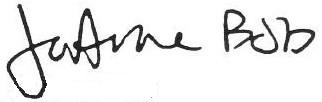 JoAnne Bob